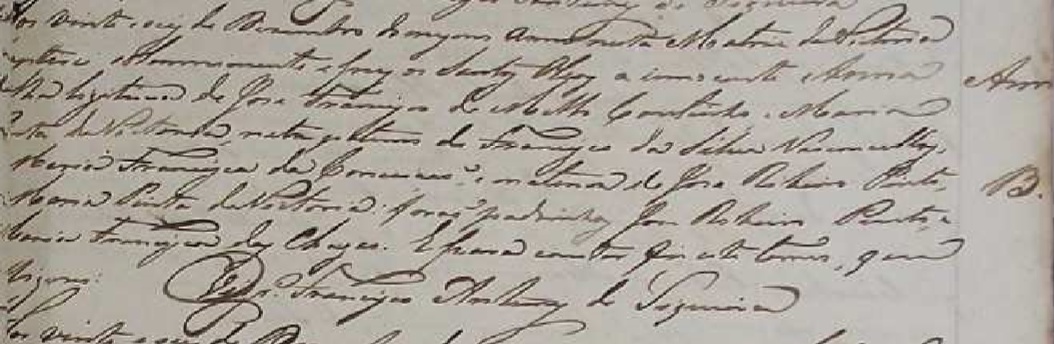 de Siqueira
Aos vinte e seis de Dezembro do mesmo anno nesta Matriz da Victoria
baptizei solemnemente e puz os Santos Oleos a innocente Anna
filha legitima de Joze Francisco de Mello Coutinho e Maria
Pinta da Victoria, neta paterna de Francisco da Silva Vasconcellos,
Maria Francisca da Conceiçaõ, e materna de Joze Ribeiro Pinto, e
Maria Pinta da Victoria: foraõ padrinhos Joze Ribeiro Pinto, e
Maria Francisca das Chagas. E para constar fiz este termo, que
assignei.
Francisco Antunes de Siqueira
Aos vinte e seis de
Ann
B.